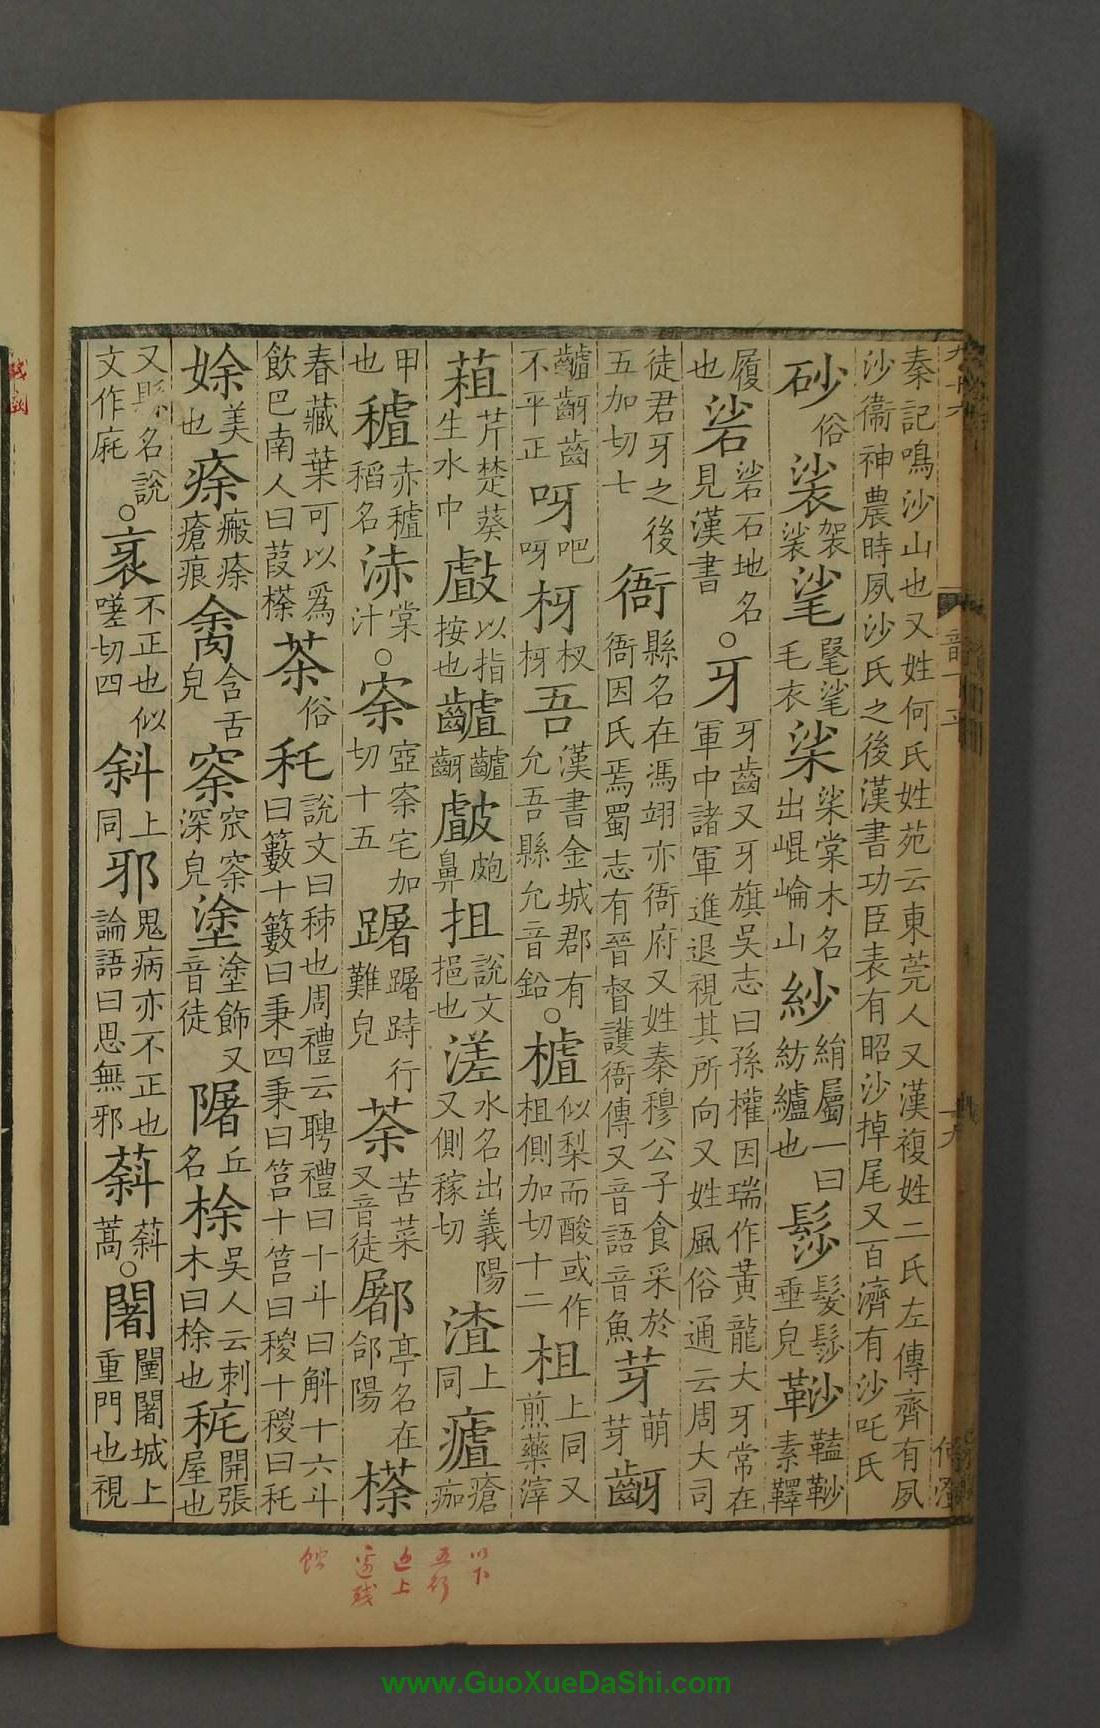 秦記鳴沙山也又姓何氏姓苑云東莞人又漢複姓二氏左傳齊有夙
沙衞神農時夙沙氏之後漢書功臣表有昭沙掉尾又百濟有沙吒氏
砂俗裟袈裟髿髿毛衣桬桬棠木名出崐崘山紗絹屬一曰紡纑也鬖髮鬖垂皃䩖鞜䩖素鞾
履也硰硰石地名見漢書○牙牙齒又牙旗吳志曰孫權因瑞作黃龍大牙常在軍中諸軍進退視其所向又姓風俗通云周大司
徒君牙之後五加切七衙縣名在馮翊亦衙府又姓秦穆公子食采於衙因氏焉蜀志有晉督護衙傳又音語音魚芽萌芽齖
齇齖齒不平正呀吧呀枒杈枒吾漢書金城郡有允吾縣允音鉛○樝似梨而酸或作柤側加切十二柤上同又煎藥滓
蒩芹楚葵生水中䖒以指按也齇齇齖皻皰鼻抯說文挹也溠水名出義陽又側稼切渣上同㾴瘡痂
甲也䅊赤䅊稻名渿棠汁○㭨㝞㭨宅加切十五䠧䠧跱行難皃荼苦菜又音徒鄌亭名在郃陽㯡
春藏葉可以爲飲巴南人曰葭㯡茶俗秅說文曰秭也周禮云聘禮曰十斗曰斛十六斗曰籔十籔曰秉四秉曰筥十筥曰稯十稯曰秅
㛼美也㾻瘢㾻瘡痕䶥含舌皃㴰㴰深皃塗塗飾又音徒䧯丘名梌吳人云刺木曰梌也㡯開張屋也
又縣名說文作庑○衺不正也似嗟切四斜上同邪鬼病亦不正也論語曰思無邪䔑䔑蒿○闍闉闍城上重門也視
以下
五行
邊上
處殘
蝕
www.GuoXueDaShi.com